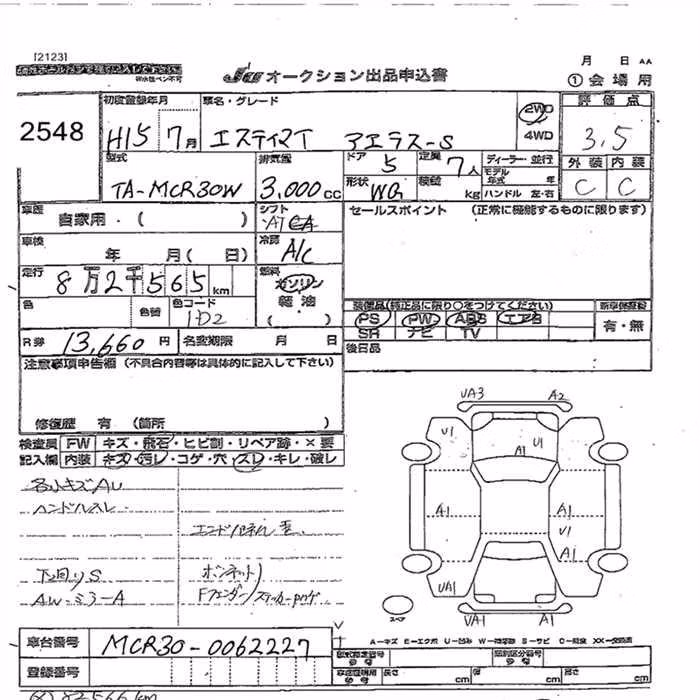 [2123]
月 日 AA
JU オークション出品申込書
① 会場用
2548
初度登録年月
車名・グレード
評価点
H15 7月 エスティマT アエラス-S
2WD
4WD
3.5
型式
排気量
ドア 5
定員 7人
ディーラー・並行
モデル年式 年
外装 内装
TA-MCR30W
3,000cc
形状 WG
積載 kg
ハンドル 左・右
C C
車歴
自家用・( )
シフト
セールスポイント (正常に機能するものに限ります)
車検
年 月( 日)
冷房
A/C
走行
8万2千565km
燃料
ガソリン
軽油
( ・ )
色
色替
色コード
1D2
装備品(純正品に限り○をつけてください)
新車保証書
PS PW ABS エアB
有・無
SR ナビ TV
R券 13,660円
名変期限 月 日
後日品
注意事項申告欄 (不具合内容等は具体的に記入して下さい)
修復歴 有 (箇所 )
検査員 FW キズ・飛石・ヒビ割・リペア跡・×要
記入欄 内装 キズ・汚レ・コゲ・穴・スレ・キレ・破レ
ハンドルスレ
下回りS
ボンネット
AW-ミラーA
UA3
A2
U1
U1
A1
A1
A1
U1
A1
UA1
UA1
A1
スペア
車台番号 MCR30-0062227
登録番号
A-キズ E-エクボ U-凹み
長さ cm
幅 cm
高さ cm